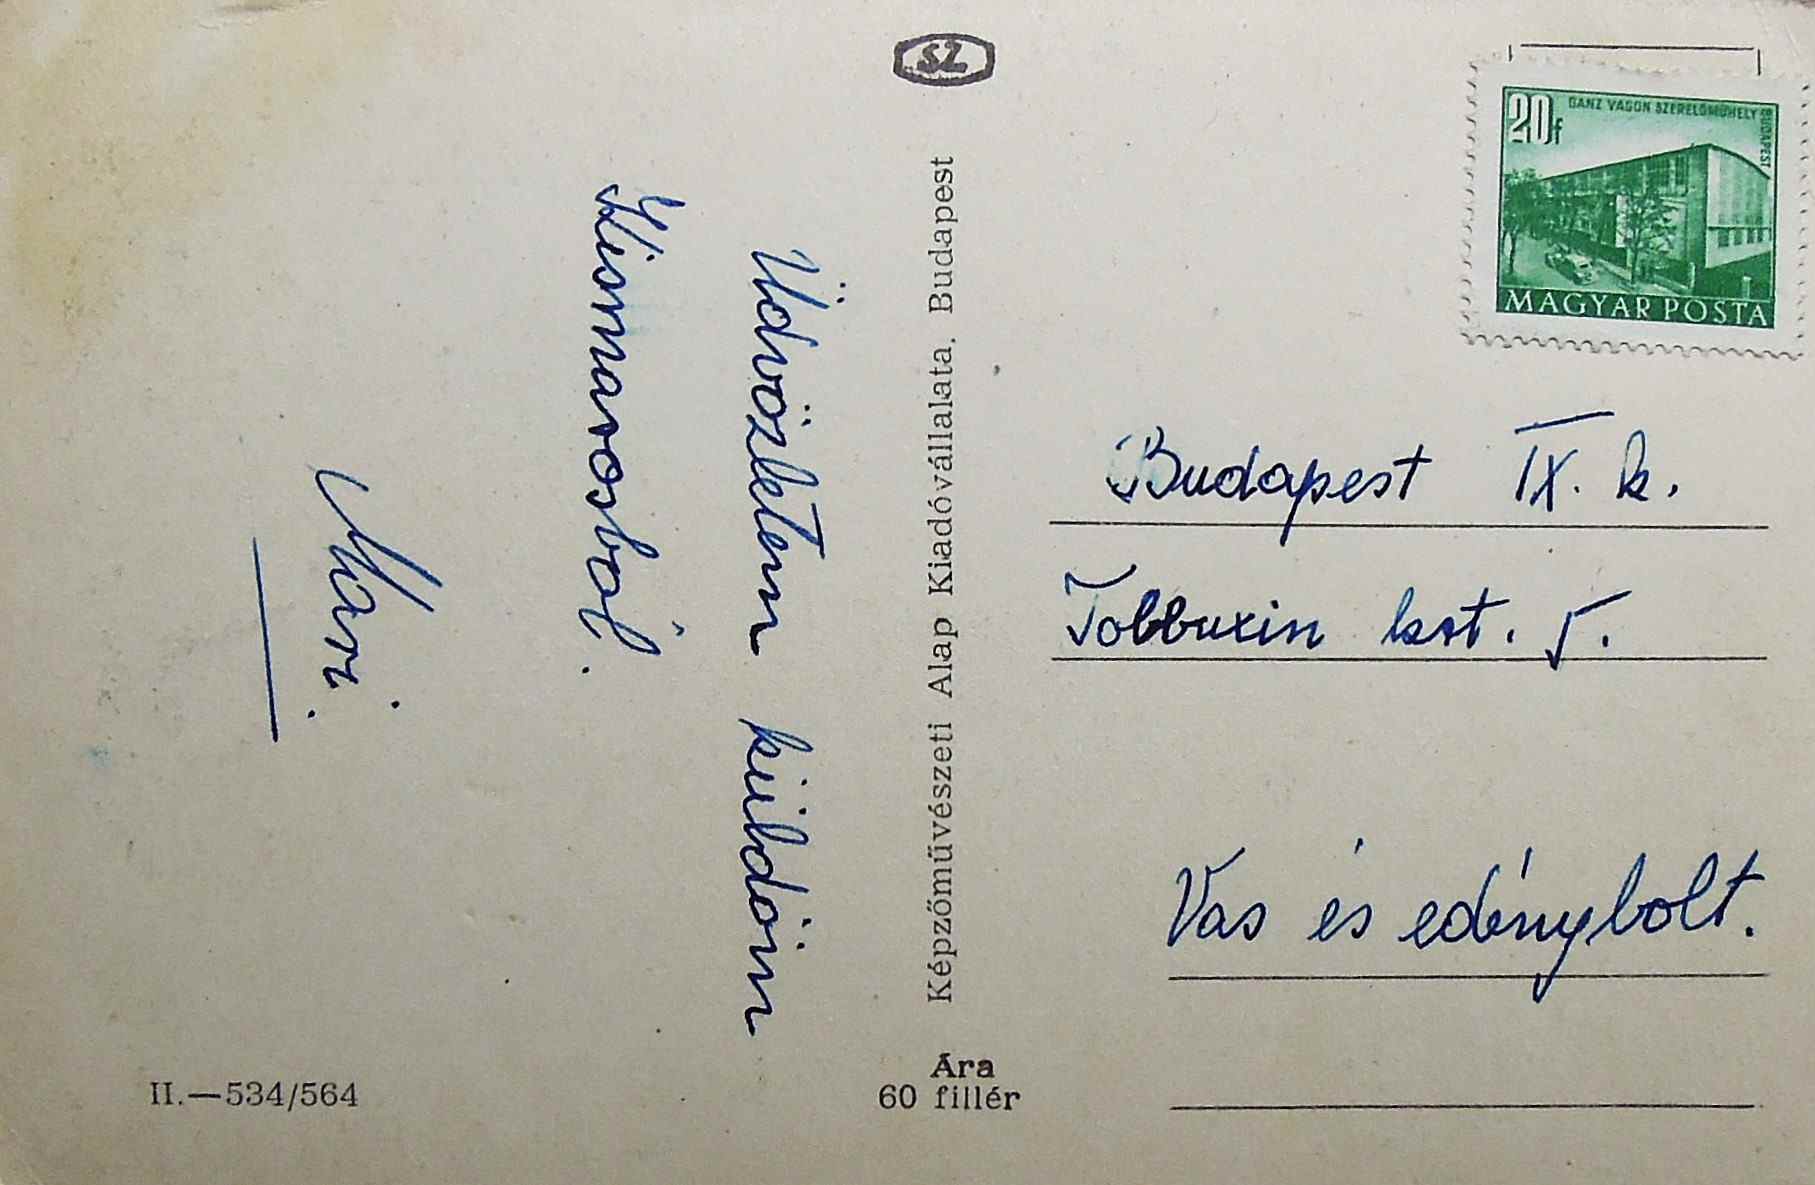 Üdvözletem küldöm
Kismarosból.
Mari.
II.—534/564
SZ
Képzőművészeti Alap Kiadóvállalata, Budapest
Ára
60 fillér
20f
GANZ VAGON SZERELŐMŰHELY
BUDAPEST
MAGYAR POSTA
Budapest IX. k.
Tobbuxin krt. 5.
Vas és edénybolt.